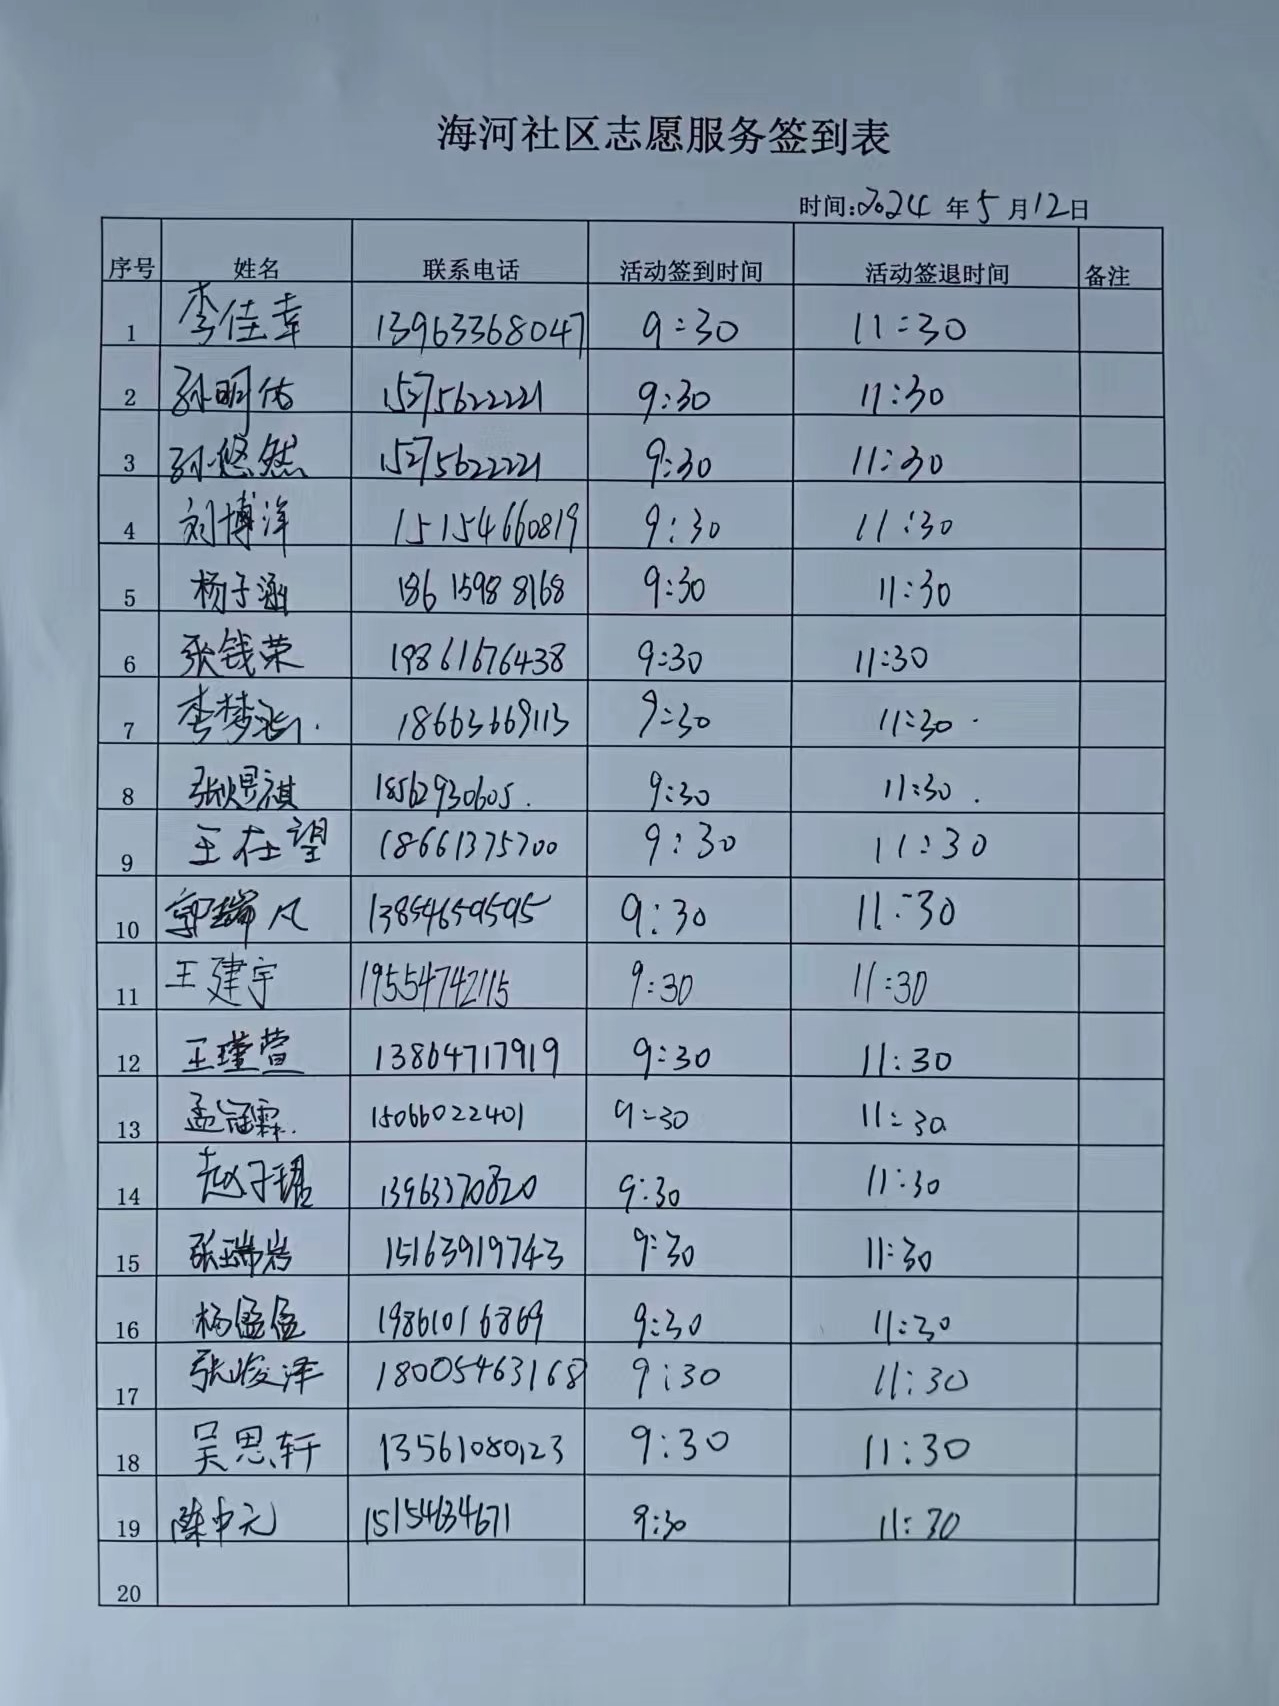 海河社区志愿服务签到表
时间:2024年5月12日
序号 姓名 联系电话 活动签到时间 活动签退时间 备注
1 李佳幸 13963368047 9:30 11:30
2 孙明佑 15275622221 9:30 11:30
3 孙悠然 15275622221 9:30 11:30
4 刘博洋 15154660819 9:30 11:30
5 杨子涵 186 1598 8168 9:30 11:30
6 张钱荣 19861676438 9:30 11:30
7 李梦 18663669113 9:30 11:30
8 张煜祺 18562930605. 9:30 11:30.
9 王在望 18661375700 9:30 11:30
10 郭瑞凡 13854659595 9:30 11:30
11 王建宇 19554742115 9:30 11:30
12 王瑾萱 13864717919 9:30 11:30
13 孟冠霖. 15066022401 9:30 11:30
14 赵子珺 13963370820 9:30 11:30
15 张瑞岩 15163919743 9:30 11:30
16 杨盈盈 19861016869 9:30 11:30
17 张峻泽 18005463168 9:30 11:30
18 吴思轩 13561080123 9:30 11:30
19 陈中元 15154634671 9:30 11:30
20